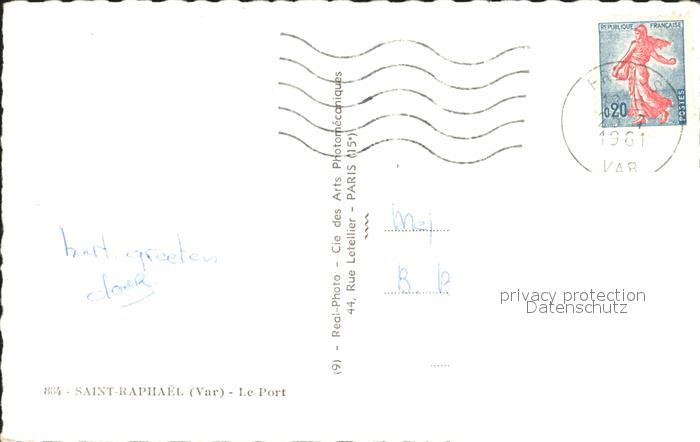 RÉPUBLIQUE FRANÇAISE
0,20
POSTES
1961
VAR
(9) - Real-Photo - Cie des Arts Photomécaniques
44, Rue Letellier - PARIS (15e)
hart. groeten
Mej
B. B
privacy protection
Datenschutz
834 - SAINT-RAPHAËL (Var) - Le Port